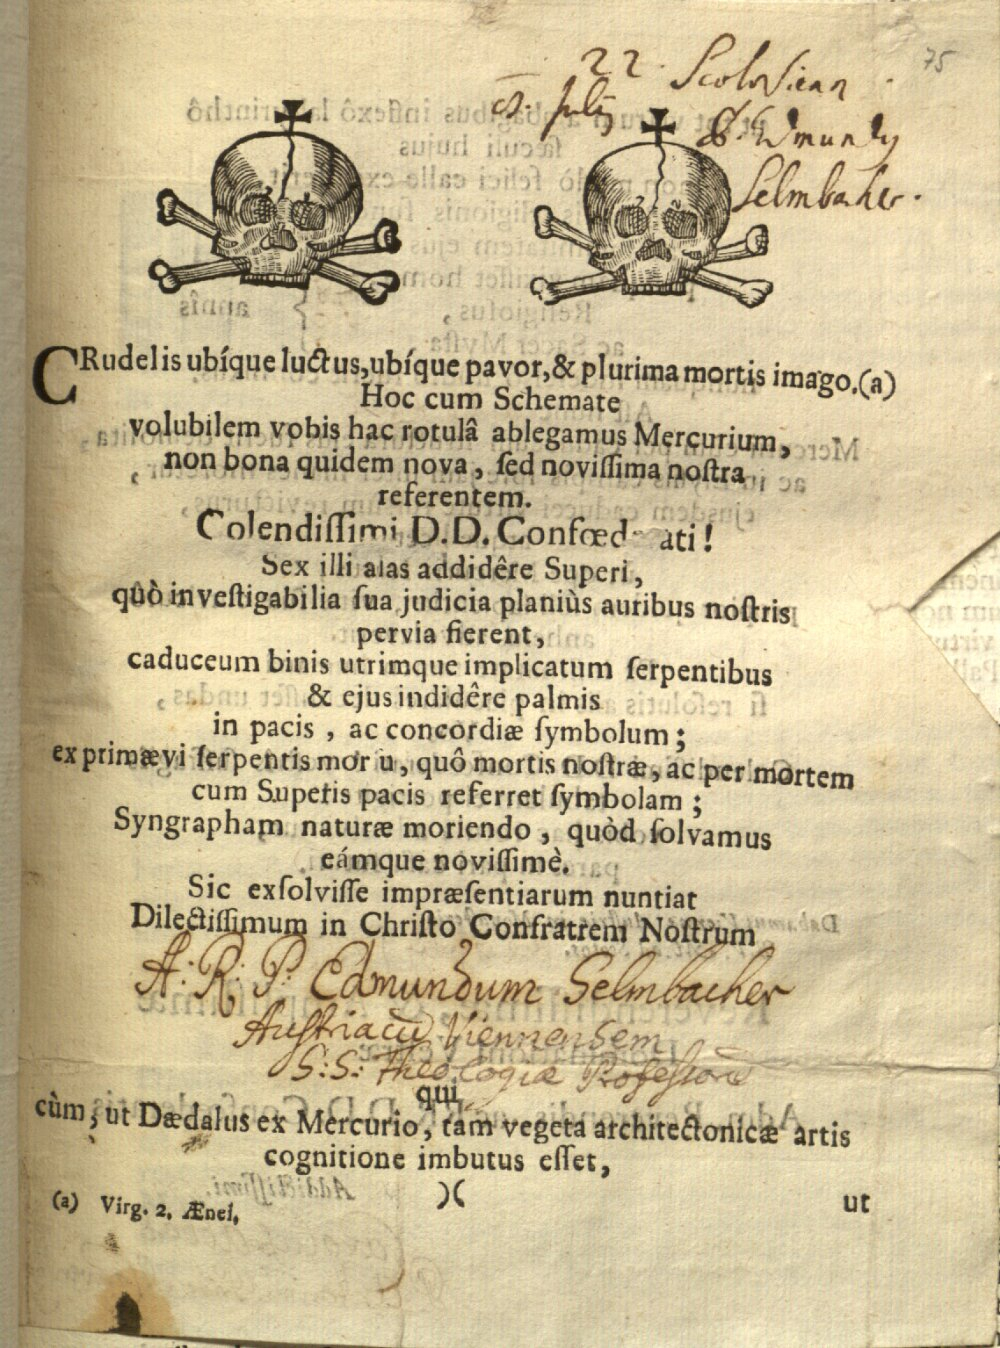 75
22. Scotorsienn
Julij
Edmundy
Selmbacher.
CRudelis ubíque luctus, ubíque pavor, & plurima mortis imago. (a)
Hoc cum Schemate
volubilem vobis hac rotulâ ablegamus Mercurium,
non bona quidem nova, ſed noviſſima noſtra
referentem.
Colendiſſimi D.D. Confœd ati!
Sex illi alas addidêre Superi,
quò inveſtigabilia ſua judicia planiùs auribus noſtris
pervia fierent,
caduceum binis utrimque implicatum ſerpentibus
& ejus indidêre palmis
in pacis, ac concordiæ ſymbolum;
ex primævi ſerpentis mor u, quô mortis noſtræ, ac per mortem
cum Superis pacis referret ſymbolam;
Syngrapham naturæ moriendo, quòd ſolvamus
eámque noviſſimè.
Sic exſolviſſe impræſentiarum nuntiat
Dilectiſſimum in Chriſto Confratrem Noſtrum
A: R: P: Edmundum Selmbacher
Auſtriacū Viennensem
S: S: Theologiæ Profeſſorē
qui
cùm, ut Dædalus ex Mercurio, tam vegeta architectonicæ artis
cognitione imbutus eſſet,
(a) Virg. 2. Ænei.
)( ut